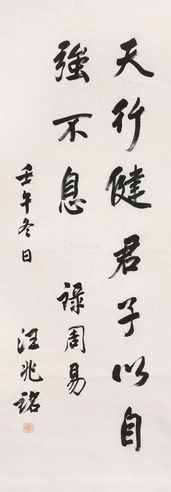 天行健君子以自
強不息
錄周易
壬午冬日
汪兆銘